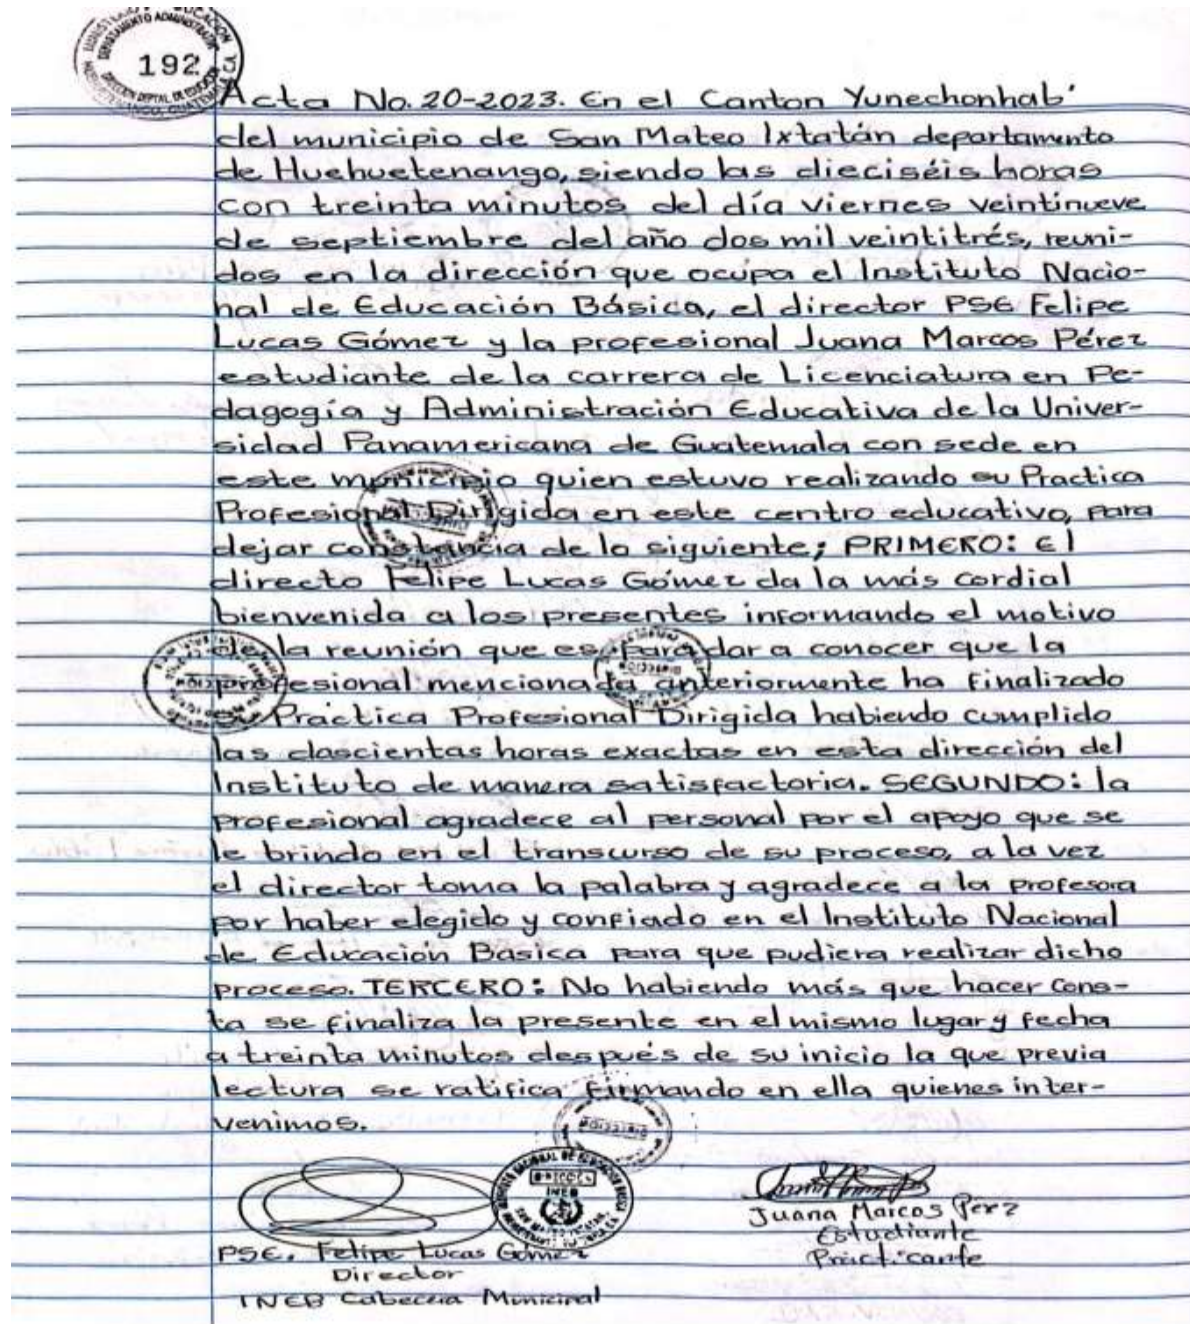 192
Acta No. 20-2023. En el Canton Yunechonhab'
del municipio de San Mateo Ixtatán departamento
de Huehuetenango, siendo las dieciséis horas
con treinta minutos del día viernes veintinueve
de septiembre del año dos mil veintitrés, reuni-
dos en la dirección que ocupa el Instituto Nacio-
nal de Educación Básica, el director PSE Felipe
Lucas Gómez y la profesional Juana Marcos Pérez
estudiante de la carrera de Licenciatura en Pe-
dagogía y Administración Educativa de la Univer-
sidad Panamericana de Guatemala con sede en
este municipio quien estuvo realizando su Practica
Profesional Dirigida en este centro educativo, para
dejar constancia de lo siguiente; PRIMERO: El
directo Felipe Lucas Gómez da la más cordial
bienvenida a los presentes informando el motivo
de la reunión que es para dar a conocer que la
profesional mencionada anteriormente ha finalizado
Practica Profesional Dirigida habiendo cumplido
las doscientas horas exactas en esta dirección del
Instituto de manera satisfactoria. SEGUNDO: la
profesional agradece al personal por el apoyo que se
le brindo en el transcurso de su proceso, a la vez
el director toma la palabra y agradece a la profesora
por haber elegido y confiado en el Instituto Nacional
de Educación Básica para que pudiera realizar dicho
proceso. TERCERO: No habiendo más que hacer cons-
ta se finaliza la presente en el mismo lugar y fecha
a treinta minutos después de su inicio la que previa
lectura se ratifica firmando en ella quienes inter-
venimos.
PSE. Felipe Lucas Gómez
Director
INEB Cabecera Municipal
Juana Marcos Perz
Estudiante
Practicante